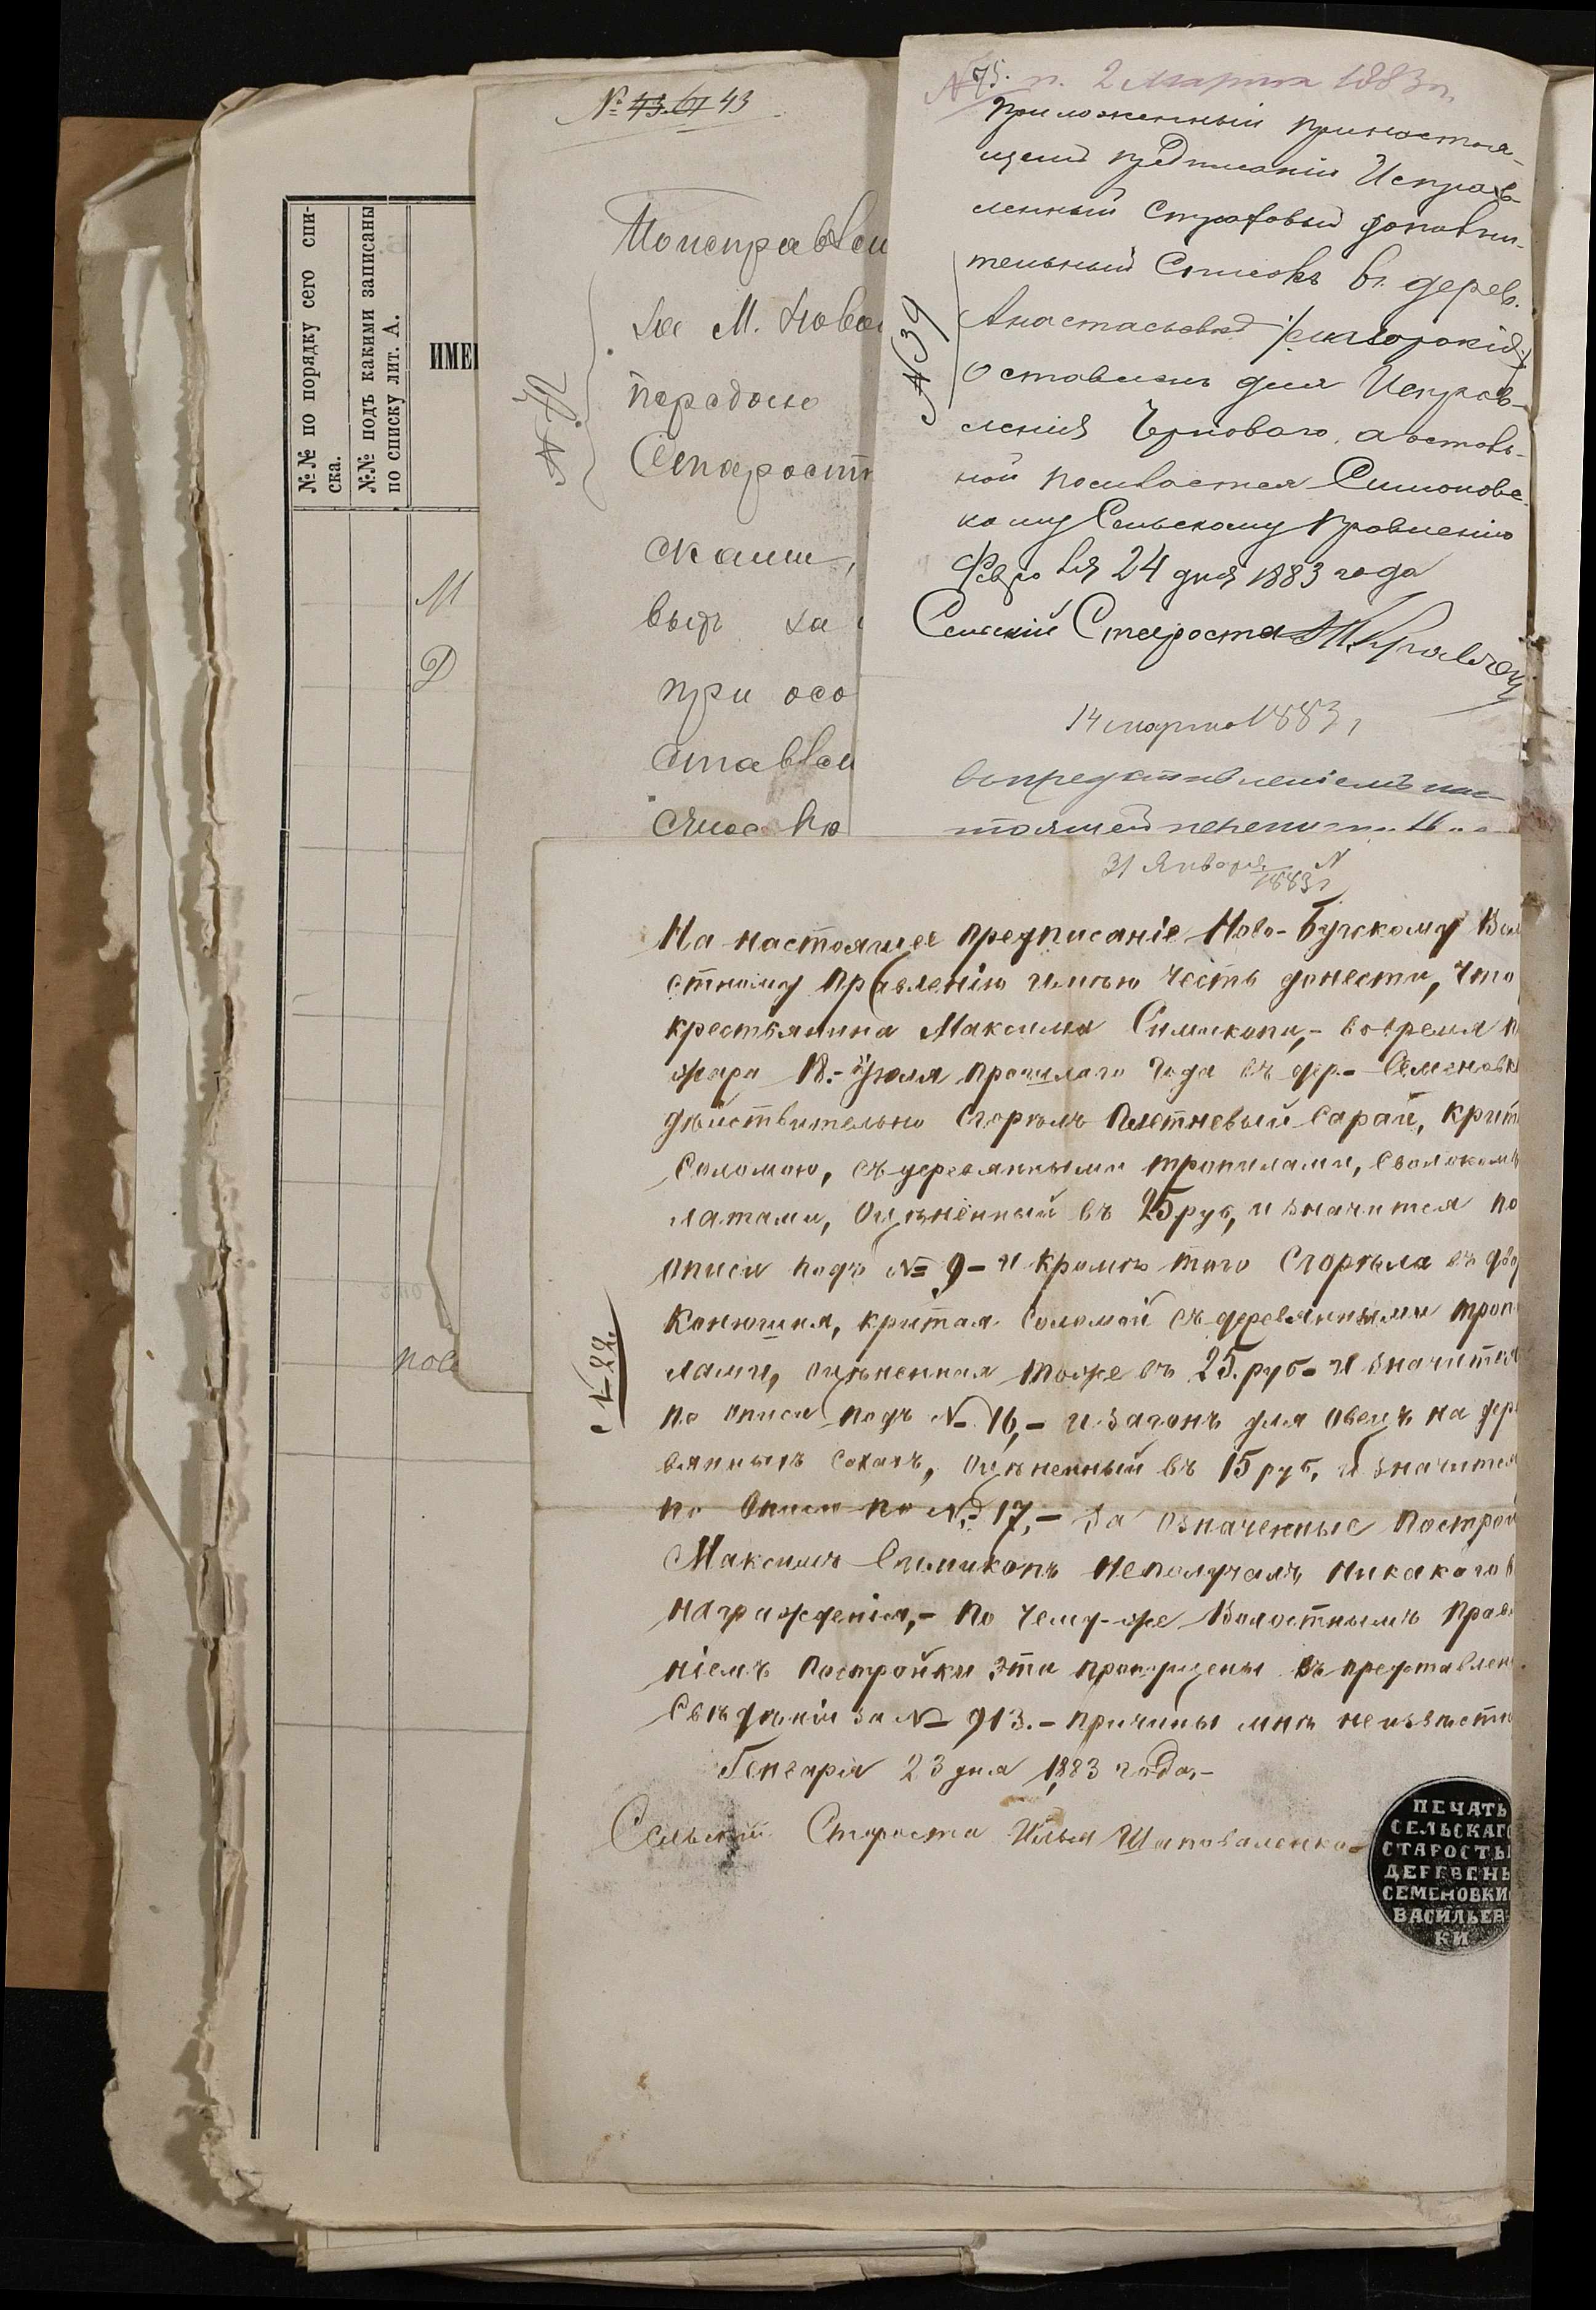 № по порядку сего спи-
ска.
№№ подъ какими записаны
по списку лит. А.
ИМЕ
М
Д
№ 43.61 43
Поисправлен
за М. Ново
передаю
Старост
скаши,
выдъ за
при осо
ставлен
№ 75. п. 2 Марта 1883 г.
Приложенный принастоя-
щемъ предписанiи Исправ-
ленный Страховый дополни-
тельный Списокъ въ дерев.
Анастасьевкѣ
Оставленъ для Исправ-
ленiя Чернового, а осталь-
ной посылается Симоновс-
кому Сельскому Правленiю
Февраля 24 дня 1883 года
Сельскiй Староста Кравчен
№ 39
14 марта 1883 г
Съ представленiемъ нас-
тоящей переписки
31 Января № 1883 г
На настоящее предписанiе Ново-Бугскому Вол
стному Правленiю имѣю честь донести, что
крестьянина Максима Симикопа,- вовремя п
жара 18.- Iюля прошлаго года въ дер.- Семеновк
дѣйствительно Сгорѣлъ Плетневый Сарай, крит
Соломою, съ деревянными тропилами, Сволокомъ
латами, Оцѣненный въ 25 руб, и значится по
описи подъ № 9 - и кромѣ того Сгорѣла въ дво
Конюшня, критая Соломой съ деревянными троп
лами, оцѣненная тоже въ 25. руб- И значится
по описи подъ № 16,- и загонъ для овецъ на дер
вянныхъ Сохахъ, Оцѣненный въ 15 руб, и значится
по Описи по № 17,- За означенные Построй
Максимъ Симикопъ неполучалъ никакого в
награжденiя,- По чему-же Волостнымъ Прав
нiемъ Постройки эти пропущены въ представлен
Свѣденiи за № 913.- Причины мнѣ неизвѣстн
Генваря 23 дня 1883 года,-
№ 22
Сельскiй Староста Илья Шаповаленко
ПЕЧАТЬ
СЕЛЬСКАГО
СТАРОСТЫ
ДЕРЕВЕНЬ
СЕМЕНОВКИ
ВАСИЛЬЕВ
КИ